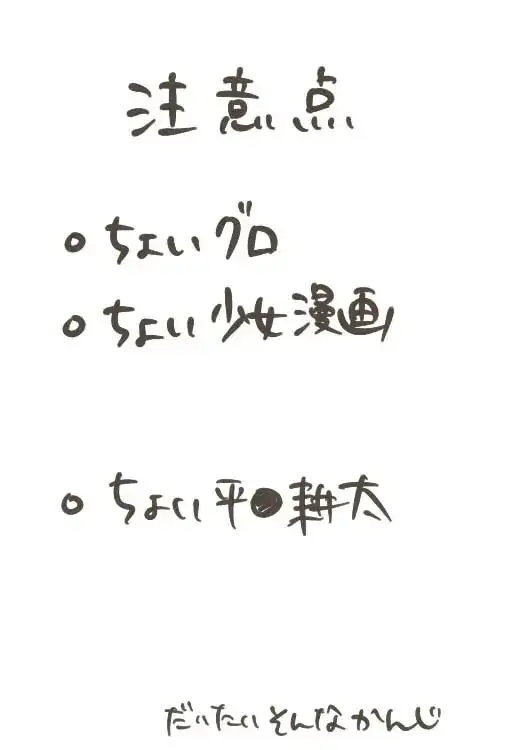 注意点
○ ちょいグロ
○ ちょい少女漫画
○ ちょい平●耕太
だいたいそんなかんじ